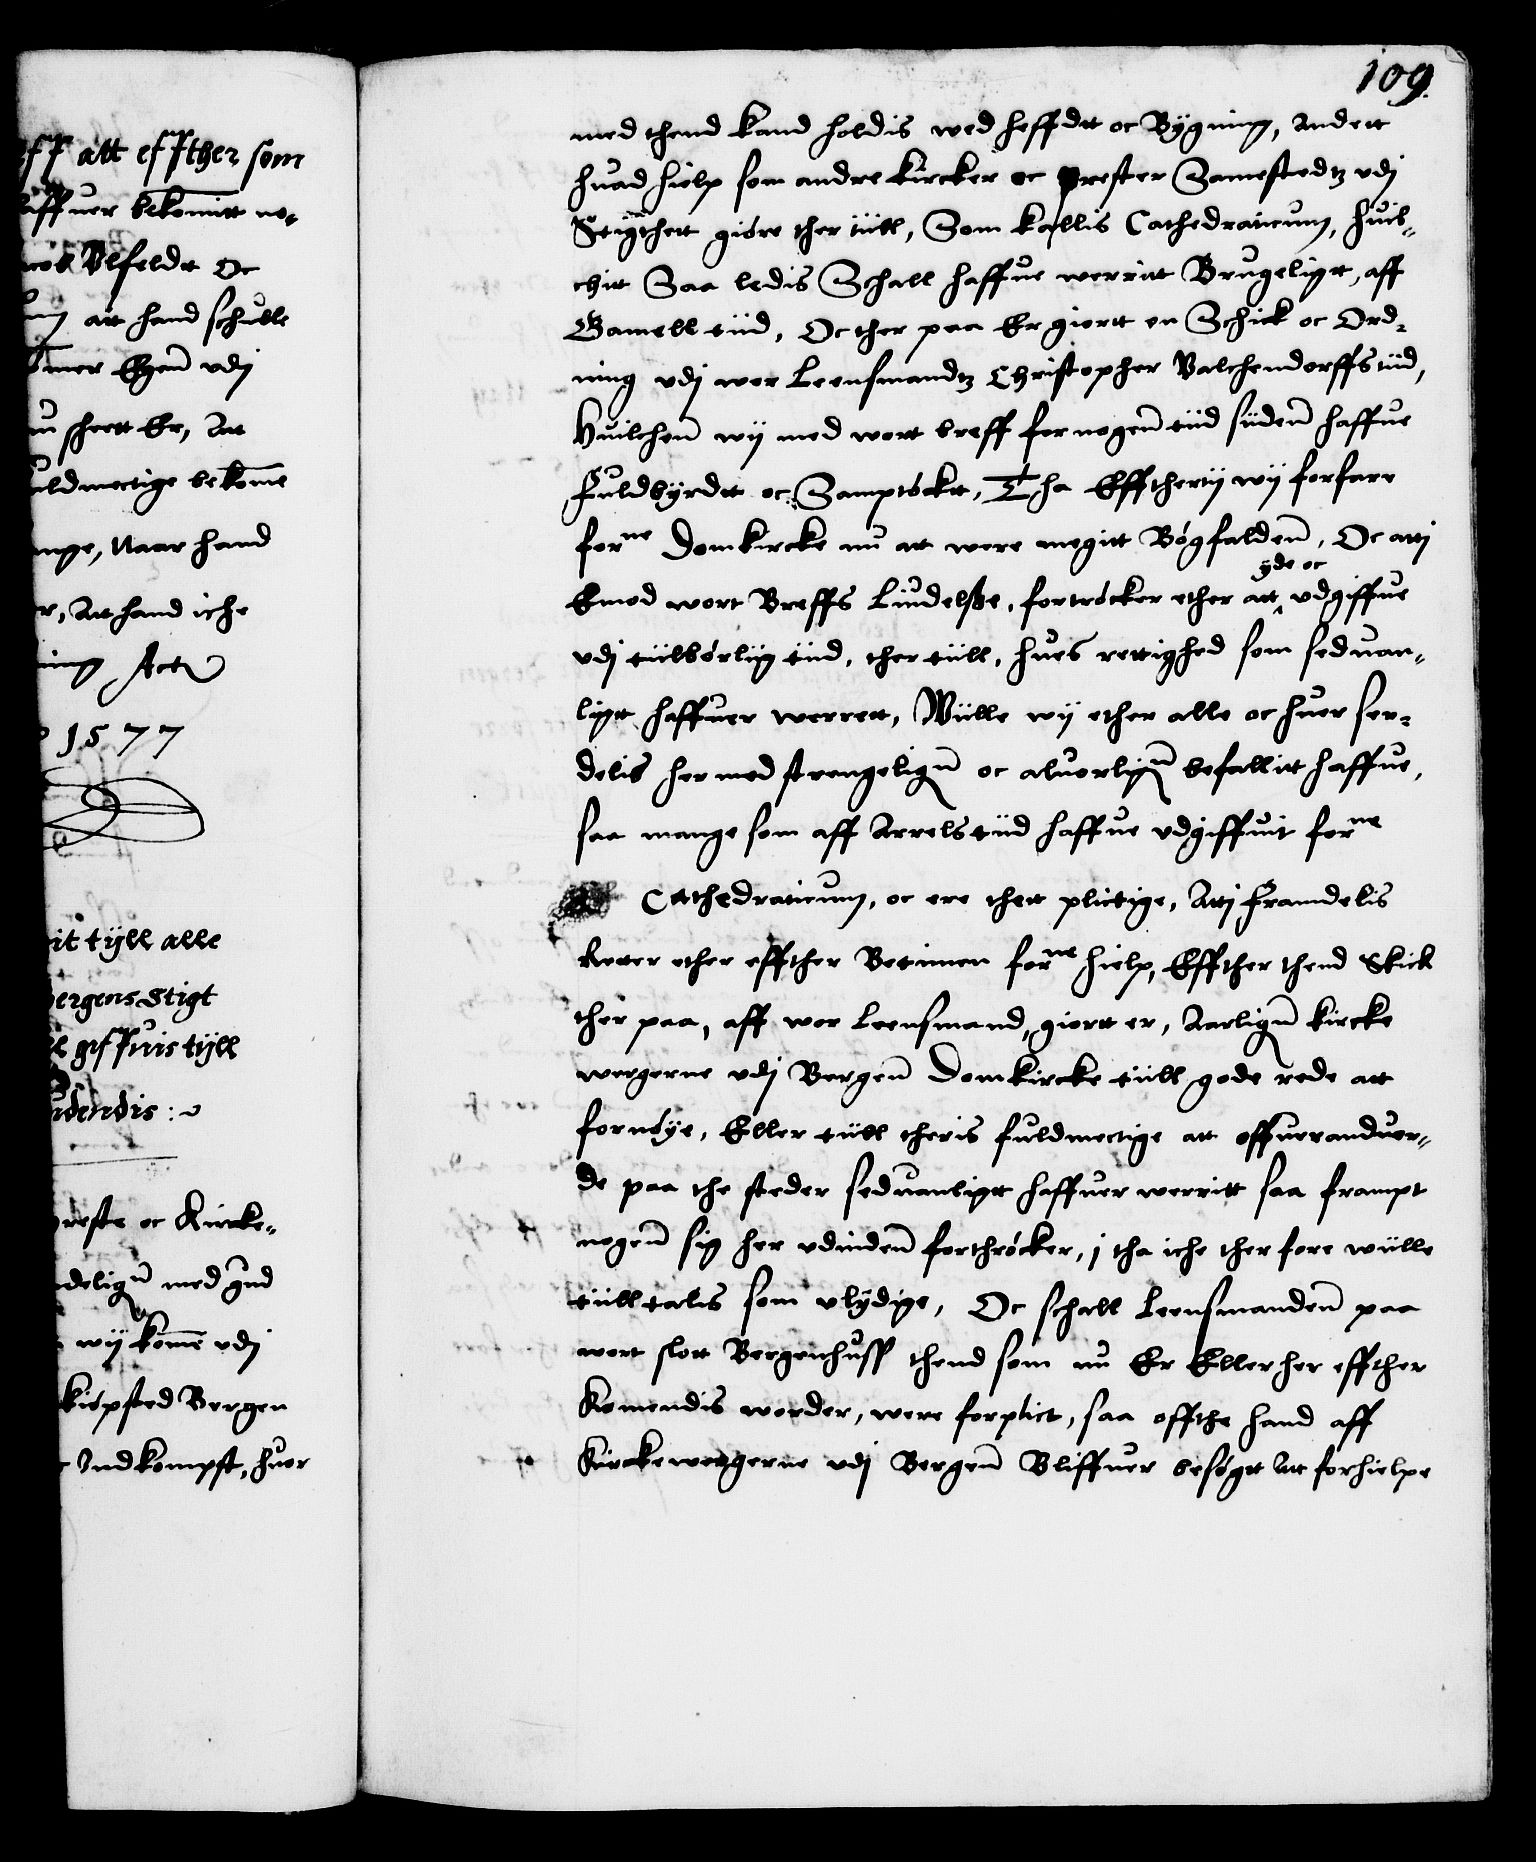 ff att effther som
affuer bekomitt no-
Vlfeldt Oc
att hand schulle
Egen vdj
skeett Er, Att
uldmectige bekome
Naar hand
Att hand iche
ing Actu
1577
it tyll alle
bergens Stigt
giffuis tyll
endis:
prester oc Kircke-
deligen med gud
wij kome vdj
kiøpsted Bergen
Indkompst, huor
109.
med thend kand holdis wed heffdt oc Bÿgning, Andett
huad hielp som andre kircker oc prester Samestedtz vdj
Stigthett giøre ther tiill, Som kallis Cathedraticum, huil-
chit Saa ledis Schall haffue werritt Brugeligtt, aff
Gamell tiid, Oc ther paa Er giortt en Schick oc Ord-
ning vdj wor Leensmandtz Christopher Valchendorffs tiid,
Huilchen wij med wort breff for nogen tiid siiden haffue
fuldbyrdt oc Samptøckt, Tha Efftherij wij forfare
forne Domkircke nu att were megitt Bøgfalden, Oc attj
Emod wort Breffs Liudelße, fortrøcker ether att yde oc vdgiffue
vdj tiilbørliig tiid, ther tiill, hues rettighed som seduan-
ligtt haffuer werrett, Wiille wij ether alle oc huer ser-
delis hermed strengeligen oc aluorligen befallitt haffue,
saa mange som aff Arrels tiid haffue vdgiffuit forne
Cathedraticum, oc ere thett plictige, Attj framdelis
Retter ether effther Betimen forne hielp, Effther thend Skick
ther paa, aff wor Leensmand, giortt er, Aarligen kircke
wergerne vdj Bergen Domkircke tiill gode rede att
fornøye, Eller tiill theris fuldmectige att offueranduor-
de paa the steder seduanligtt haffuer werritt saa frampt
nogen sig her vdinden forthrøcker, j tha iche ther fore wiille
tiilltalis som vlÿdige, Oc schall Leensmanden paa
wort slott Bergenhuss thend som nu Er Eller her effther
komendis worder, were forplict, saa offthe hand aff
Kirckewergerne vdj Bergen Bliffuer besøgtt Att forhielpe